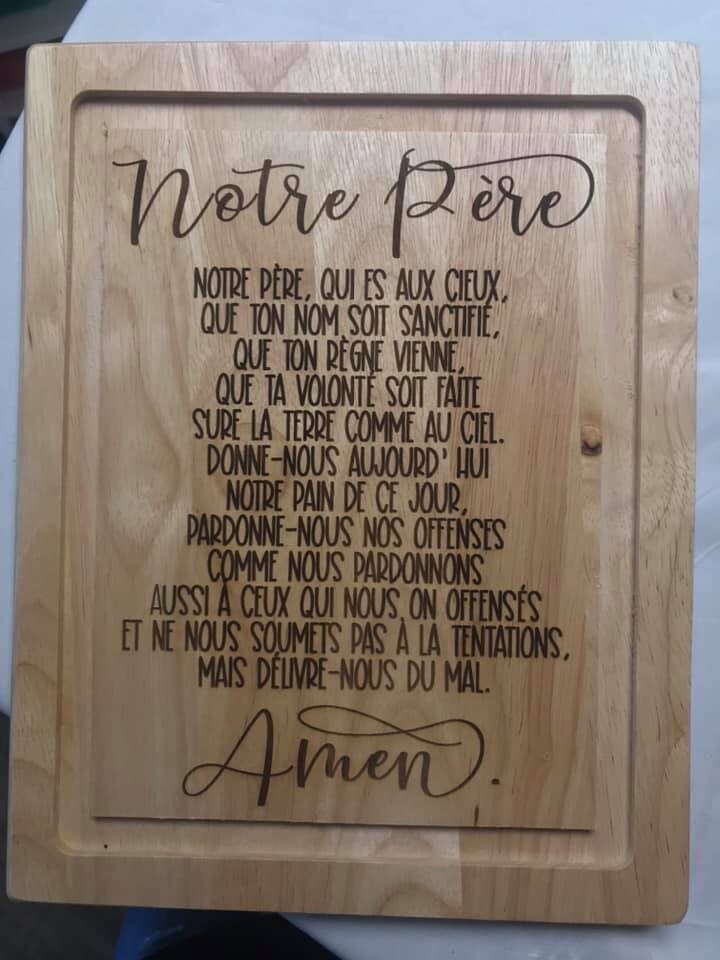 Notre Père
NOTRE PÈRE, QUI ES AUX CIEUX,
QUE TON NOM SOIT SANCTIFIÉ,
QUE TON RÈGNE VIENNE,
QUE TA VOLONTÉ SOIT FAITE
SURE LA TERRE COMME AU CIEL.
DONNE-NOUS AUJOURD' HUI
NOTRE PAIN DE CE JOUR,
PARDONNE-NOUS NOS OFFENSES
COMME NOUS PARDONNONS
AUSSI À CEUX QUI NOUS ON OFFENSÉS
ET NE NOUS SOUMETS PAS À LA TENTATIONS,
MAIS DÉLIVRE-NOUS DU MAL.
Amen.